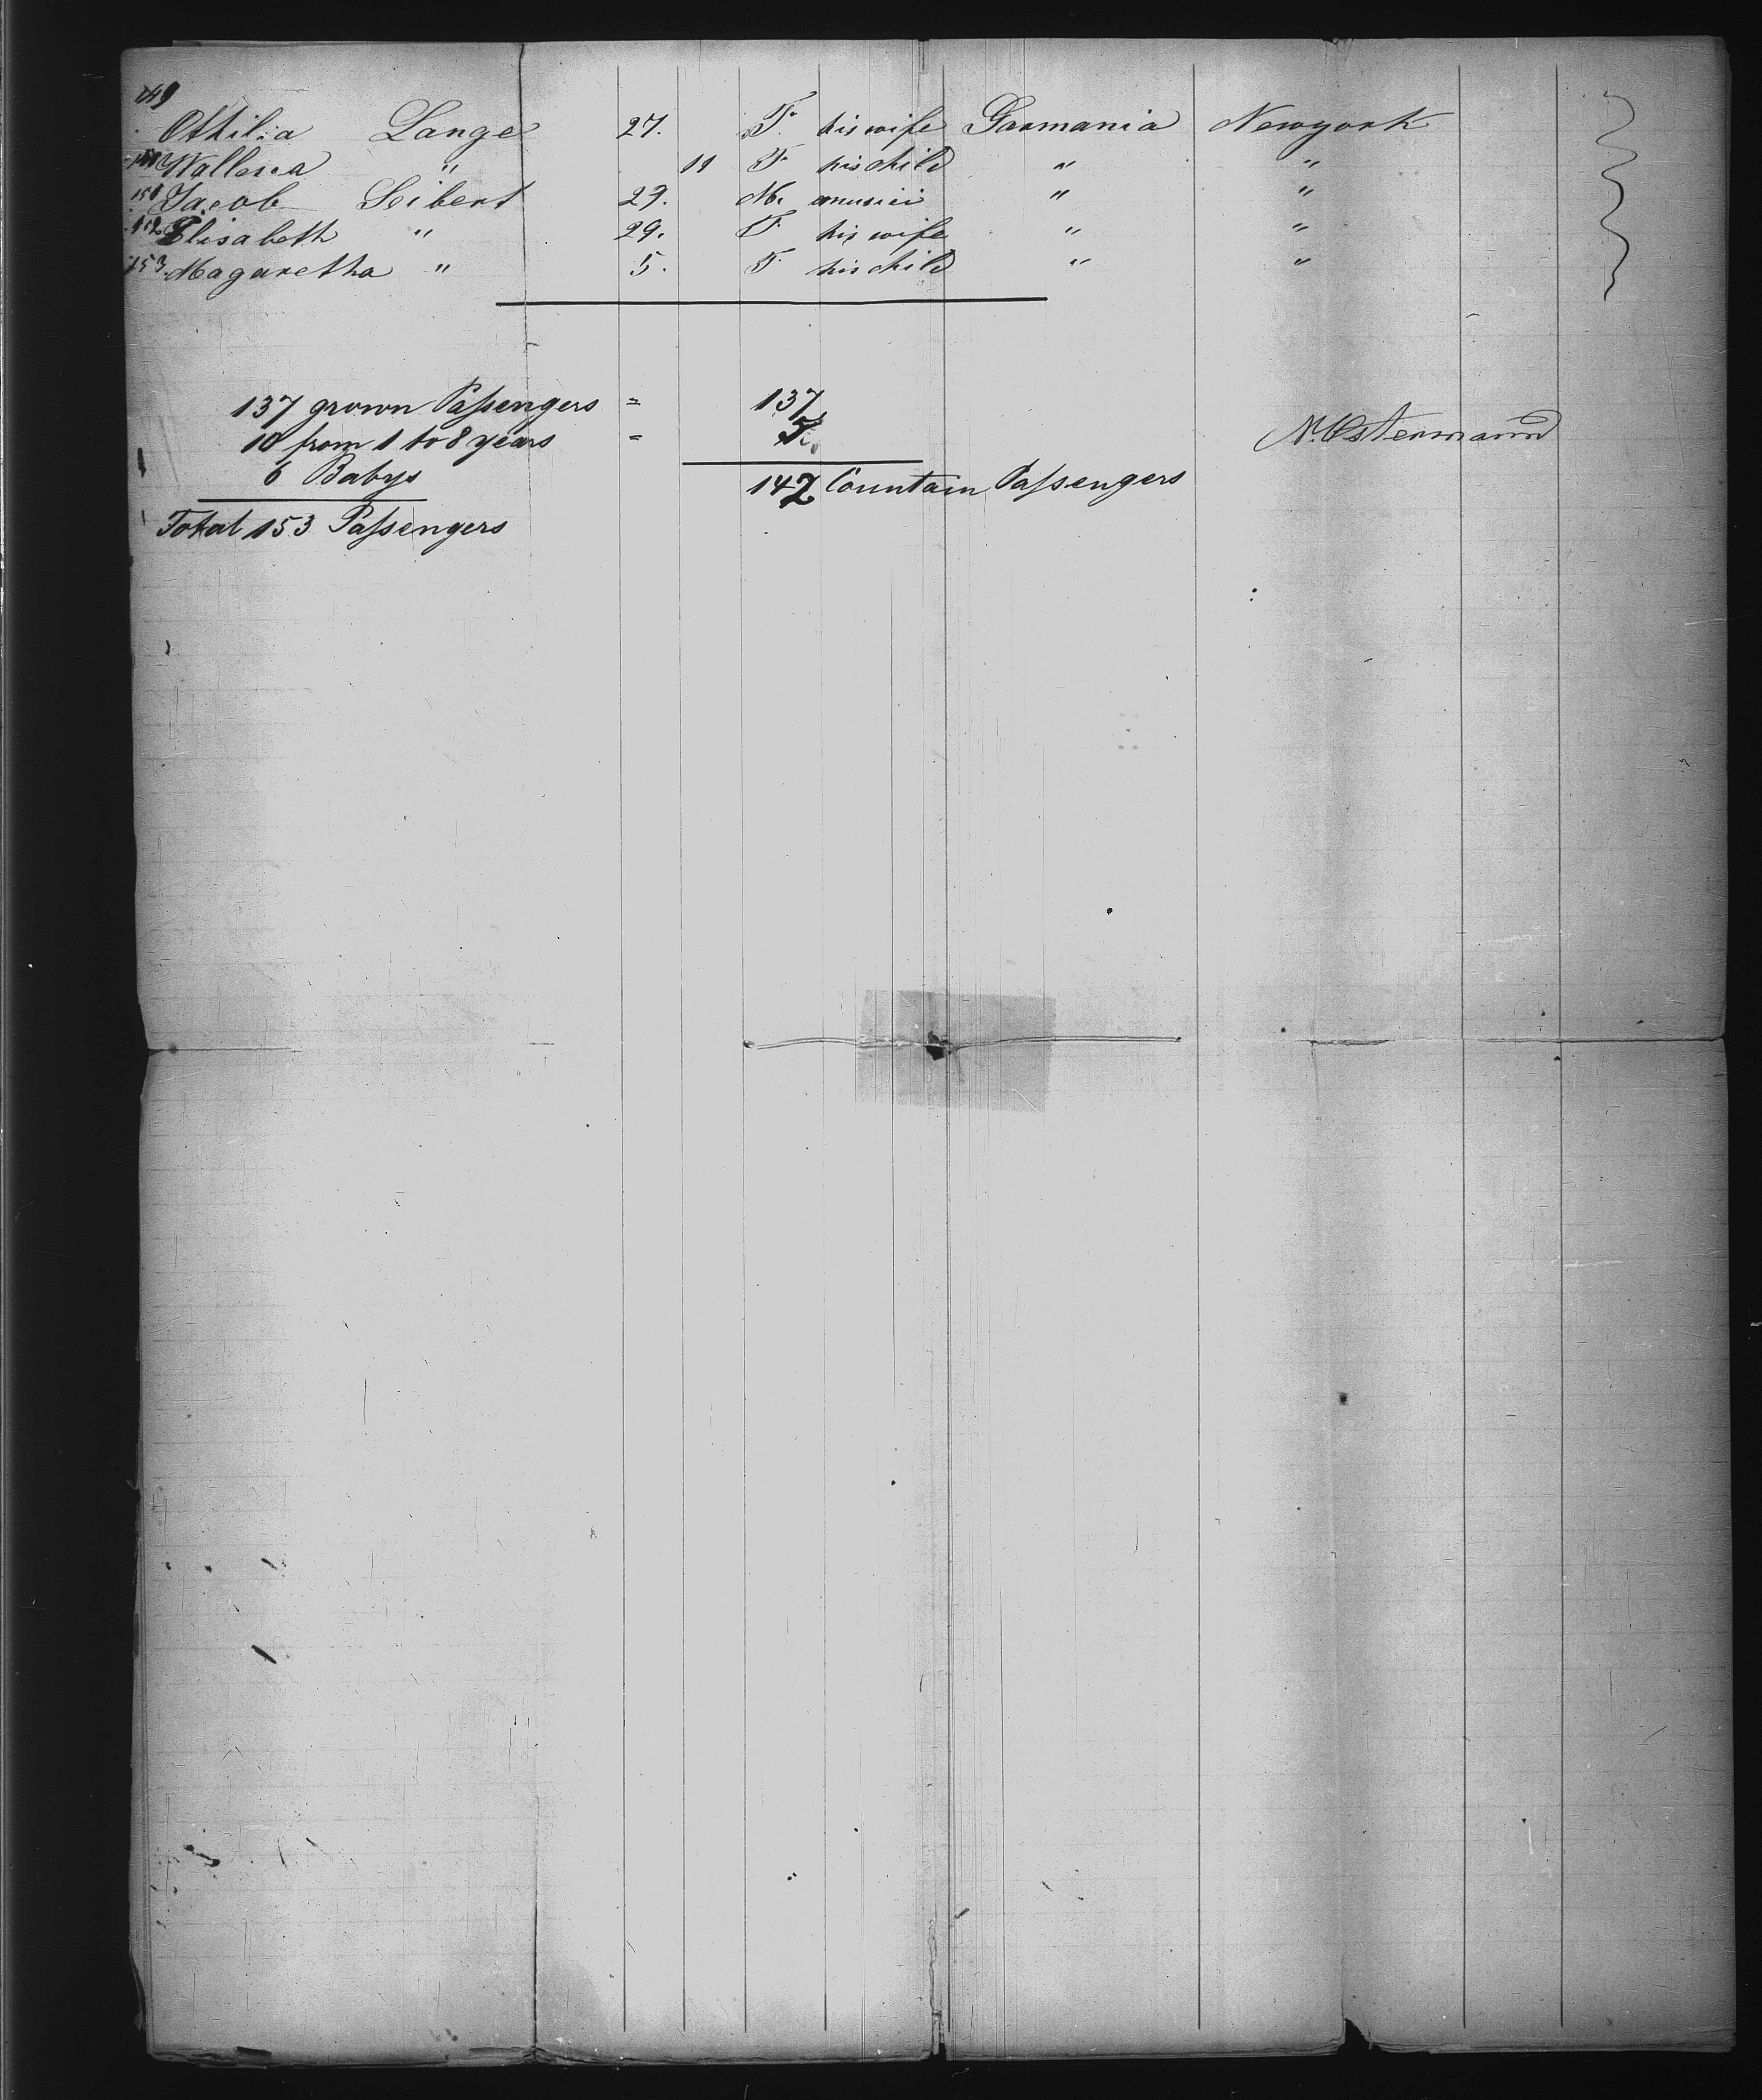 149
Othilia Lange 27. F. his wife Garmania Newyork
150 Wallesca " 11 F his child " "
151 Jacob Seibert 29. M. musici " "
152 Elisabeth " 29. F. his wife " "
153 Magaretha " 5. F. his child " "
137 grown Passengers = 137
10 from 1 to 8 years = 5
N. Ostermann
6 Babys
142 Countain Passengers
Total 153 Passengers